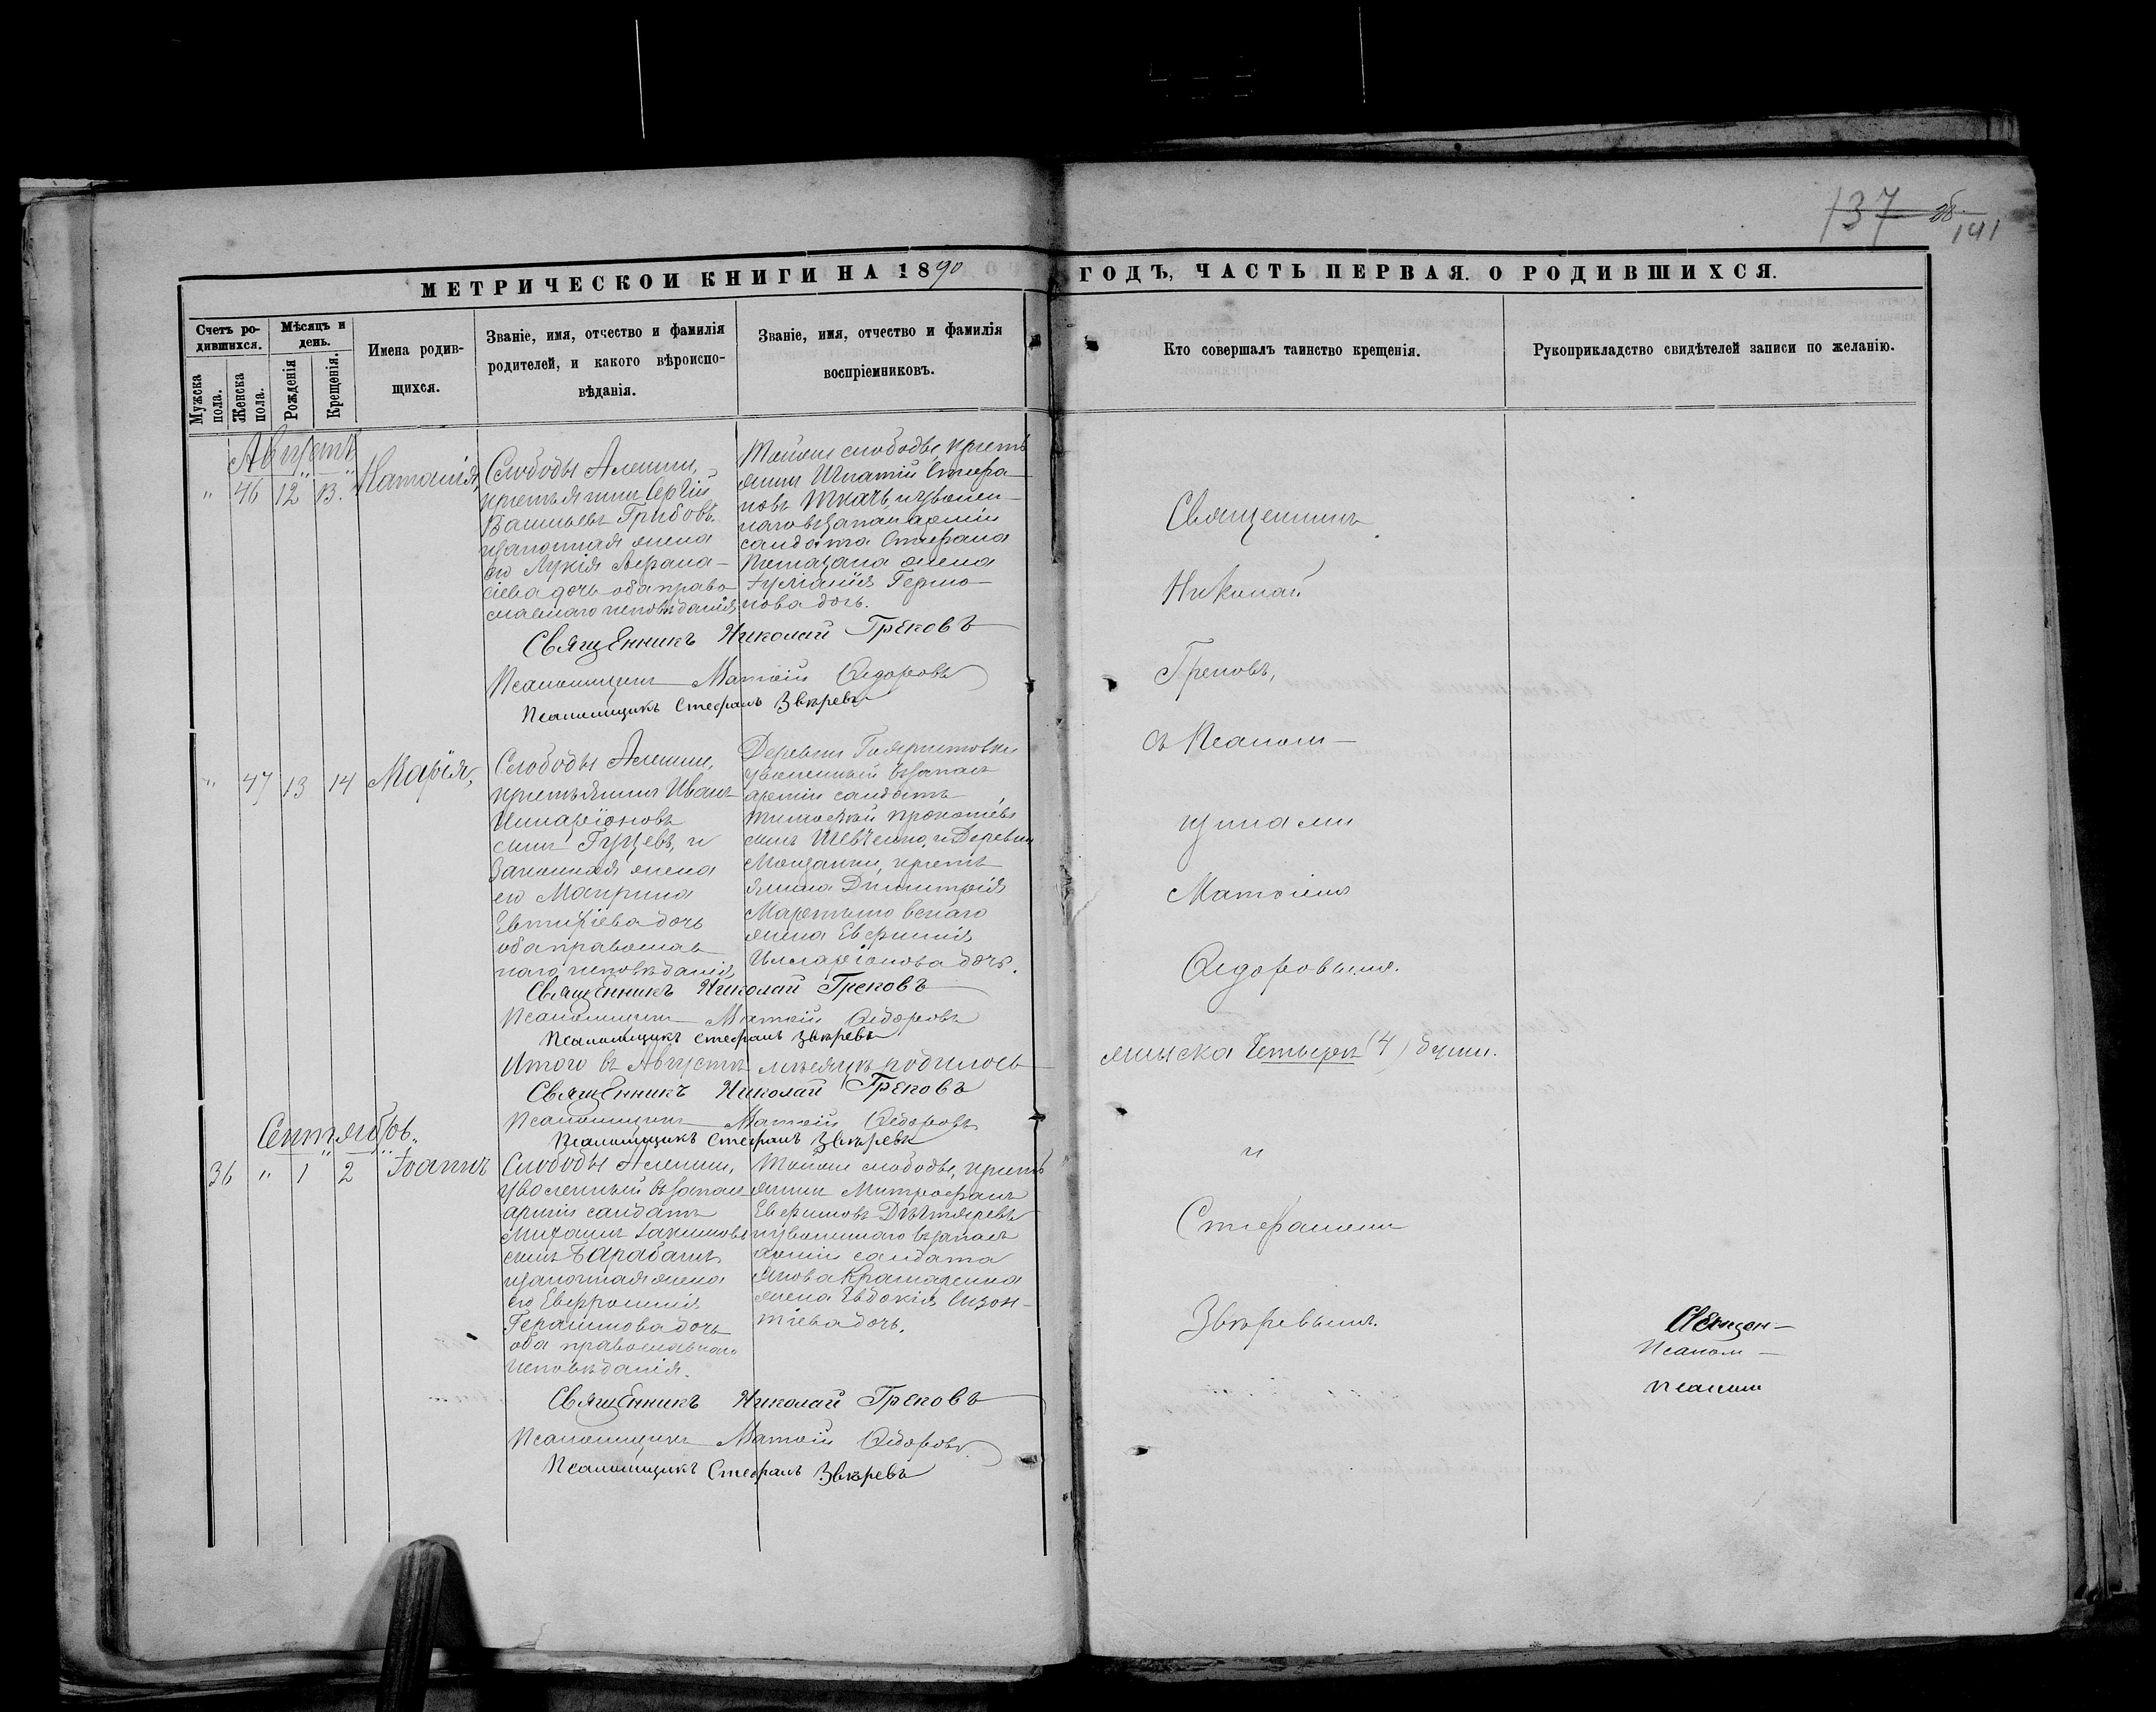 137 об. 141
МЕТРИЧЕСКОЙ КНИГИ НА 1890 ГОДЪ, ЧАСТЬ ПЕРВАЯ. О РОДИВШИХСЯ.
Счетъ ро-
дившихся.
Мужска
пола.
Женска
пола.
Мѣсяцъ и
день.
Рожденія
Крещенія.
Имена родив-
шихся.
Званіе, имя, отчество и фамилія
родителей, и какого вѣроиспо-
вѣданія.
Званіе, имя, отчество и фамилія
воспріемниковъ.
Кто совершалъ таинство крещенія.
Рукоприкладство свидѣтелей записи по желанію.
Августъ
" 46 12 13. Наталія,
Слободы Алешни,
крестьянинъ Сергій
Васильевъ Грибовъ
и законная жена
его Лукія Афана-
сіева дочь оба право
славнаго исповѣданія
Тойже слободы, кресть
янинъ Игнатій Стефа-
новъ Ткачъ, и уволен-
наго въ запасъ арміи
солдата Стефана
жена
Іуліанія
нова дочь.
Священникъ Николай Грековъ
Псаломщикъ Матѳій Ѳедоровъ
Псаломщикъ Стефанъ Звѣревъ
" 47 13 14 Марія,
Слободы Алешни,
крестьянинъ Иванъ
Илларіоновъ
сынъ Гуцевъ, и
законная жена
его Макрина
Евтихіева дочь
оба православ
наго исповѣданія
Деревни
уволенный въ запасъ
арміи солдатъ
Тимоѳей Прокопіевъ
сынъ Шевченко, и Деревни
кресть
янина Димитрія
жена Евфимія
Илларіонова дочь.
Священникъ Николай Грековъ
Псаломщикъ Матѳій Ѳедоровъ
Псаломщикъ Стефанъ Звѣревъ
Итого въ Августѣ мѣсяцѣ родилось
женска Четыре (4) души.
Священникъ Николай Грековъ
Псаломщикъ Матѳій Ѳедоровъ
Псаломщикъ Стефанъ Звѣревъ
Сентябрь.
36 " 1 2 Іоаннъ
Слободы Алешни,
уволенный въ запасъ
арміи солдатъ
Михаилъ Іакимовъ
сынъ Барабашъ
и законная жена
его Евфросинія
Герасимова дочь
оба православнаго
исповѣданія.
Тойже слободы, кресть
янинъ Митрофанъ
Евфимовъ Дѣхтяревъ
и уволеннаго въ запасъ
арміи солдата
Якова
жена Евдокія
дочь.
Священникъ Николай Грековъ
Псаломщикъ Матѳій Ѳедоровъ
Псаломщикъ Стефанъ Звѣревъ
Священникъ
Николай
Грековъ,
съ Псалом-
щиками
Матѳіемъ
Ѳедоровымъ.
и
Стефаномъ
Звѣревымъ.
Священ-
Псалом-
Псалом